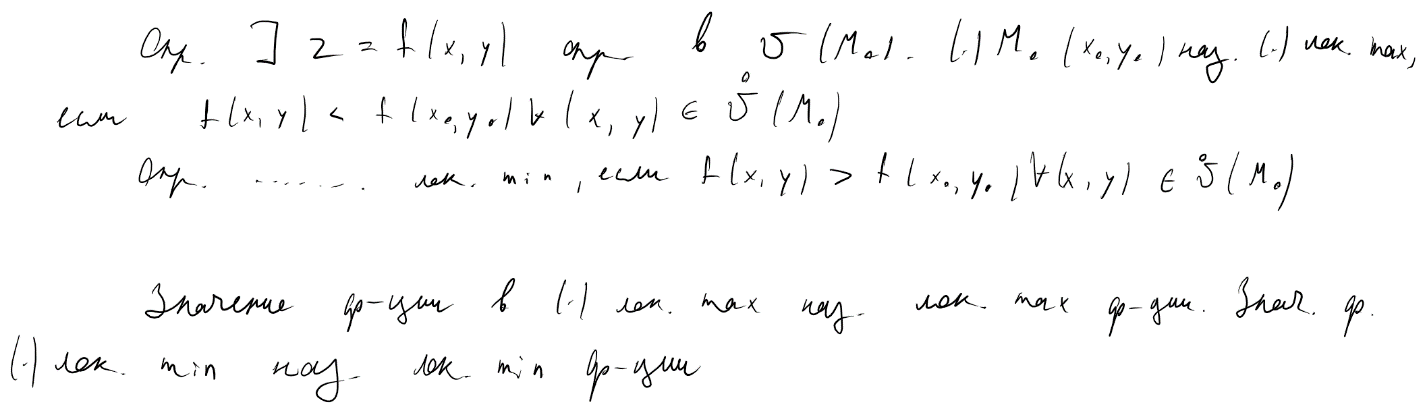 Опр. ] z = f(x, y) опр. в U(M₀). (·) M₀ (x₀, y₀) наз. (·) лок. max,
если f(x, y) < f(x₀, y₀) ∀ (x, y) ∈ Ů(M₀)
Опр. ....... лок. min, если f(x, y) > f(x₀, y₀) ∀(x, y) ∈ Ů(M₀)
Значение ф-ции в (·) лок. max наз. лок. max ф-ции. Знач. ф.
(·) лок. min наз. лок. min ф-ции